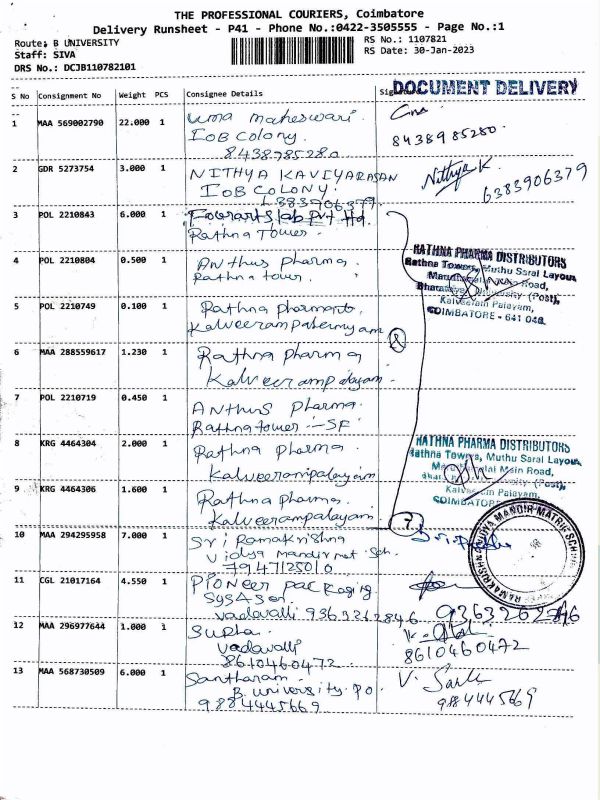 THE PROFESSIONAL COURIERS, Coimbatore
Delivery Runsheet - P41 - Phone No.:0422-3505555 - Page No.:1
Route: B UNIVERSITY
RS No.: 1107821
Staff: SIVA
RS Date: 30-Jan-2023
DRS No.: DCJB110782101
S No Consignment No Weight PCS Consignee Details Sig
DOCUMENT DELIVERY
1 MAA 569002790 22.000 1 Uma maheswari.
IOB Colony.
8438985280
8438985280.
2 GDR 5273754 3.000 1 NITHYA KAVIYARASAN
IOB COLONY.
6383906379
Nithya K
6383906379
3 POL 2210843 6.000 1 Fourarts lab Pvt Ltd
Rathna Tower.
4 POL 2210804 0.500 1 Anthus pharma.
Rathna tower.
RATHNA PHARMA DISTRIBUTORS
Rathna Towers, Muthu Saral Layout,
Road,
University (Post),
Kalveeram Palayam,
COIMBATORE - 641 046.
5 POL 2210749 0.100 1 Rathna
6 MAA 288559617 1.230 1 Rathna pharma
Kalveerampalayam.
7 POL 2210719 0.450 1 Anthus Pharma.
Rathna tower - SF
8 KRG 4464304 2.000 1 Rathna pharma.
Kalveerampalayam
RATHNA PHARMA DISTRIBUTORS
Rathna Towers, Muthu Saral Layout,
Main Road,
(Post),
Kalveeram Palayam,
COIMBATORE
9 KRG 4464306 1.600 1 Rathna pharma.
Kalveerampalayam.
7.
10 MAA 294295958 7.000 1 Sri Ramakrishna
Vidya mandir mat Sch.
7947125010
RAMAKRISHNA VIDYA MANDIR MATRIC SCH
11 CGL 21017164 4.550 1 Pioneer packaging
vadavalli 9363262846
9363262846
12 MAA 296977644 1.000 1
vadavalli
8610460472.
8610460472
13 MAA 568730509 6.000 1 Santharam.
B. university. po.
9884445669
9884445669